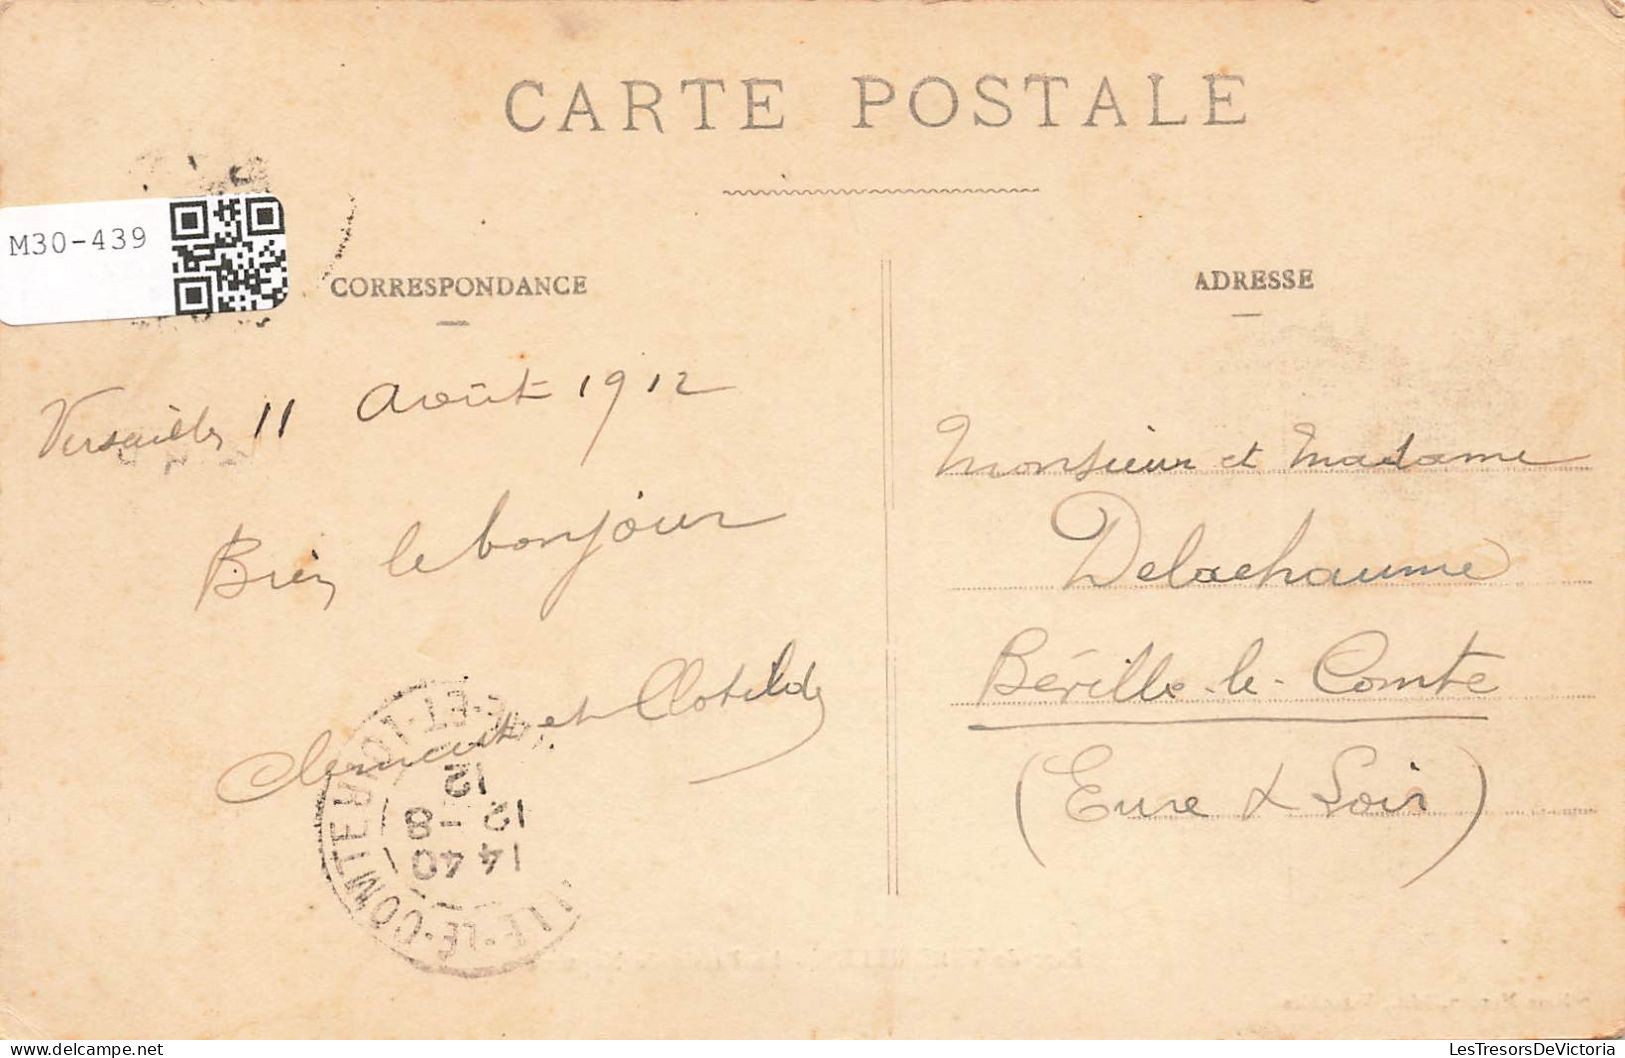 CARTE POSTALE
M30-439
CORRESPONDANCE
ADRESSE
Versailles 11 Août 1912
Bien le bonjour
Clemence et Clotilde
Monsieur et Madame
Delachaume
Béville-le-Comte
(Eure & Loir)
12
12 - 8
14 40
LE-COMTE EURE-ET-LOIR
LesTresorsDeVictoria